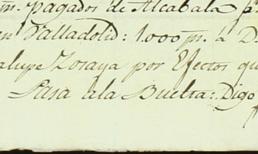 m. Pagador de Alcabala p.
en Valladolid: 1.000 p.s a D.
alupe Zoraya por Efectos qu
Pasa ala Buelta: Digo